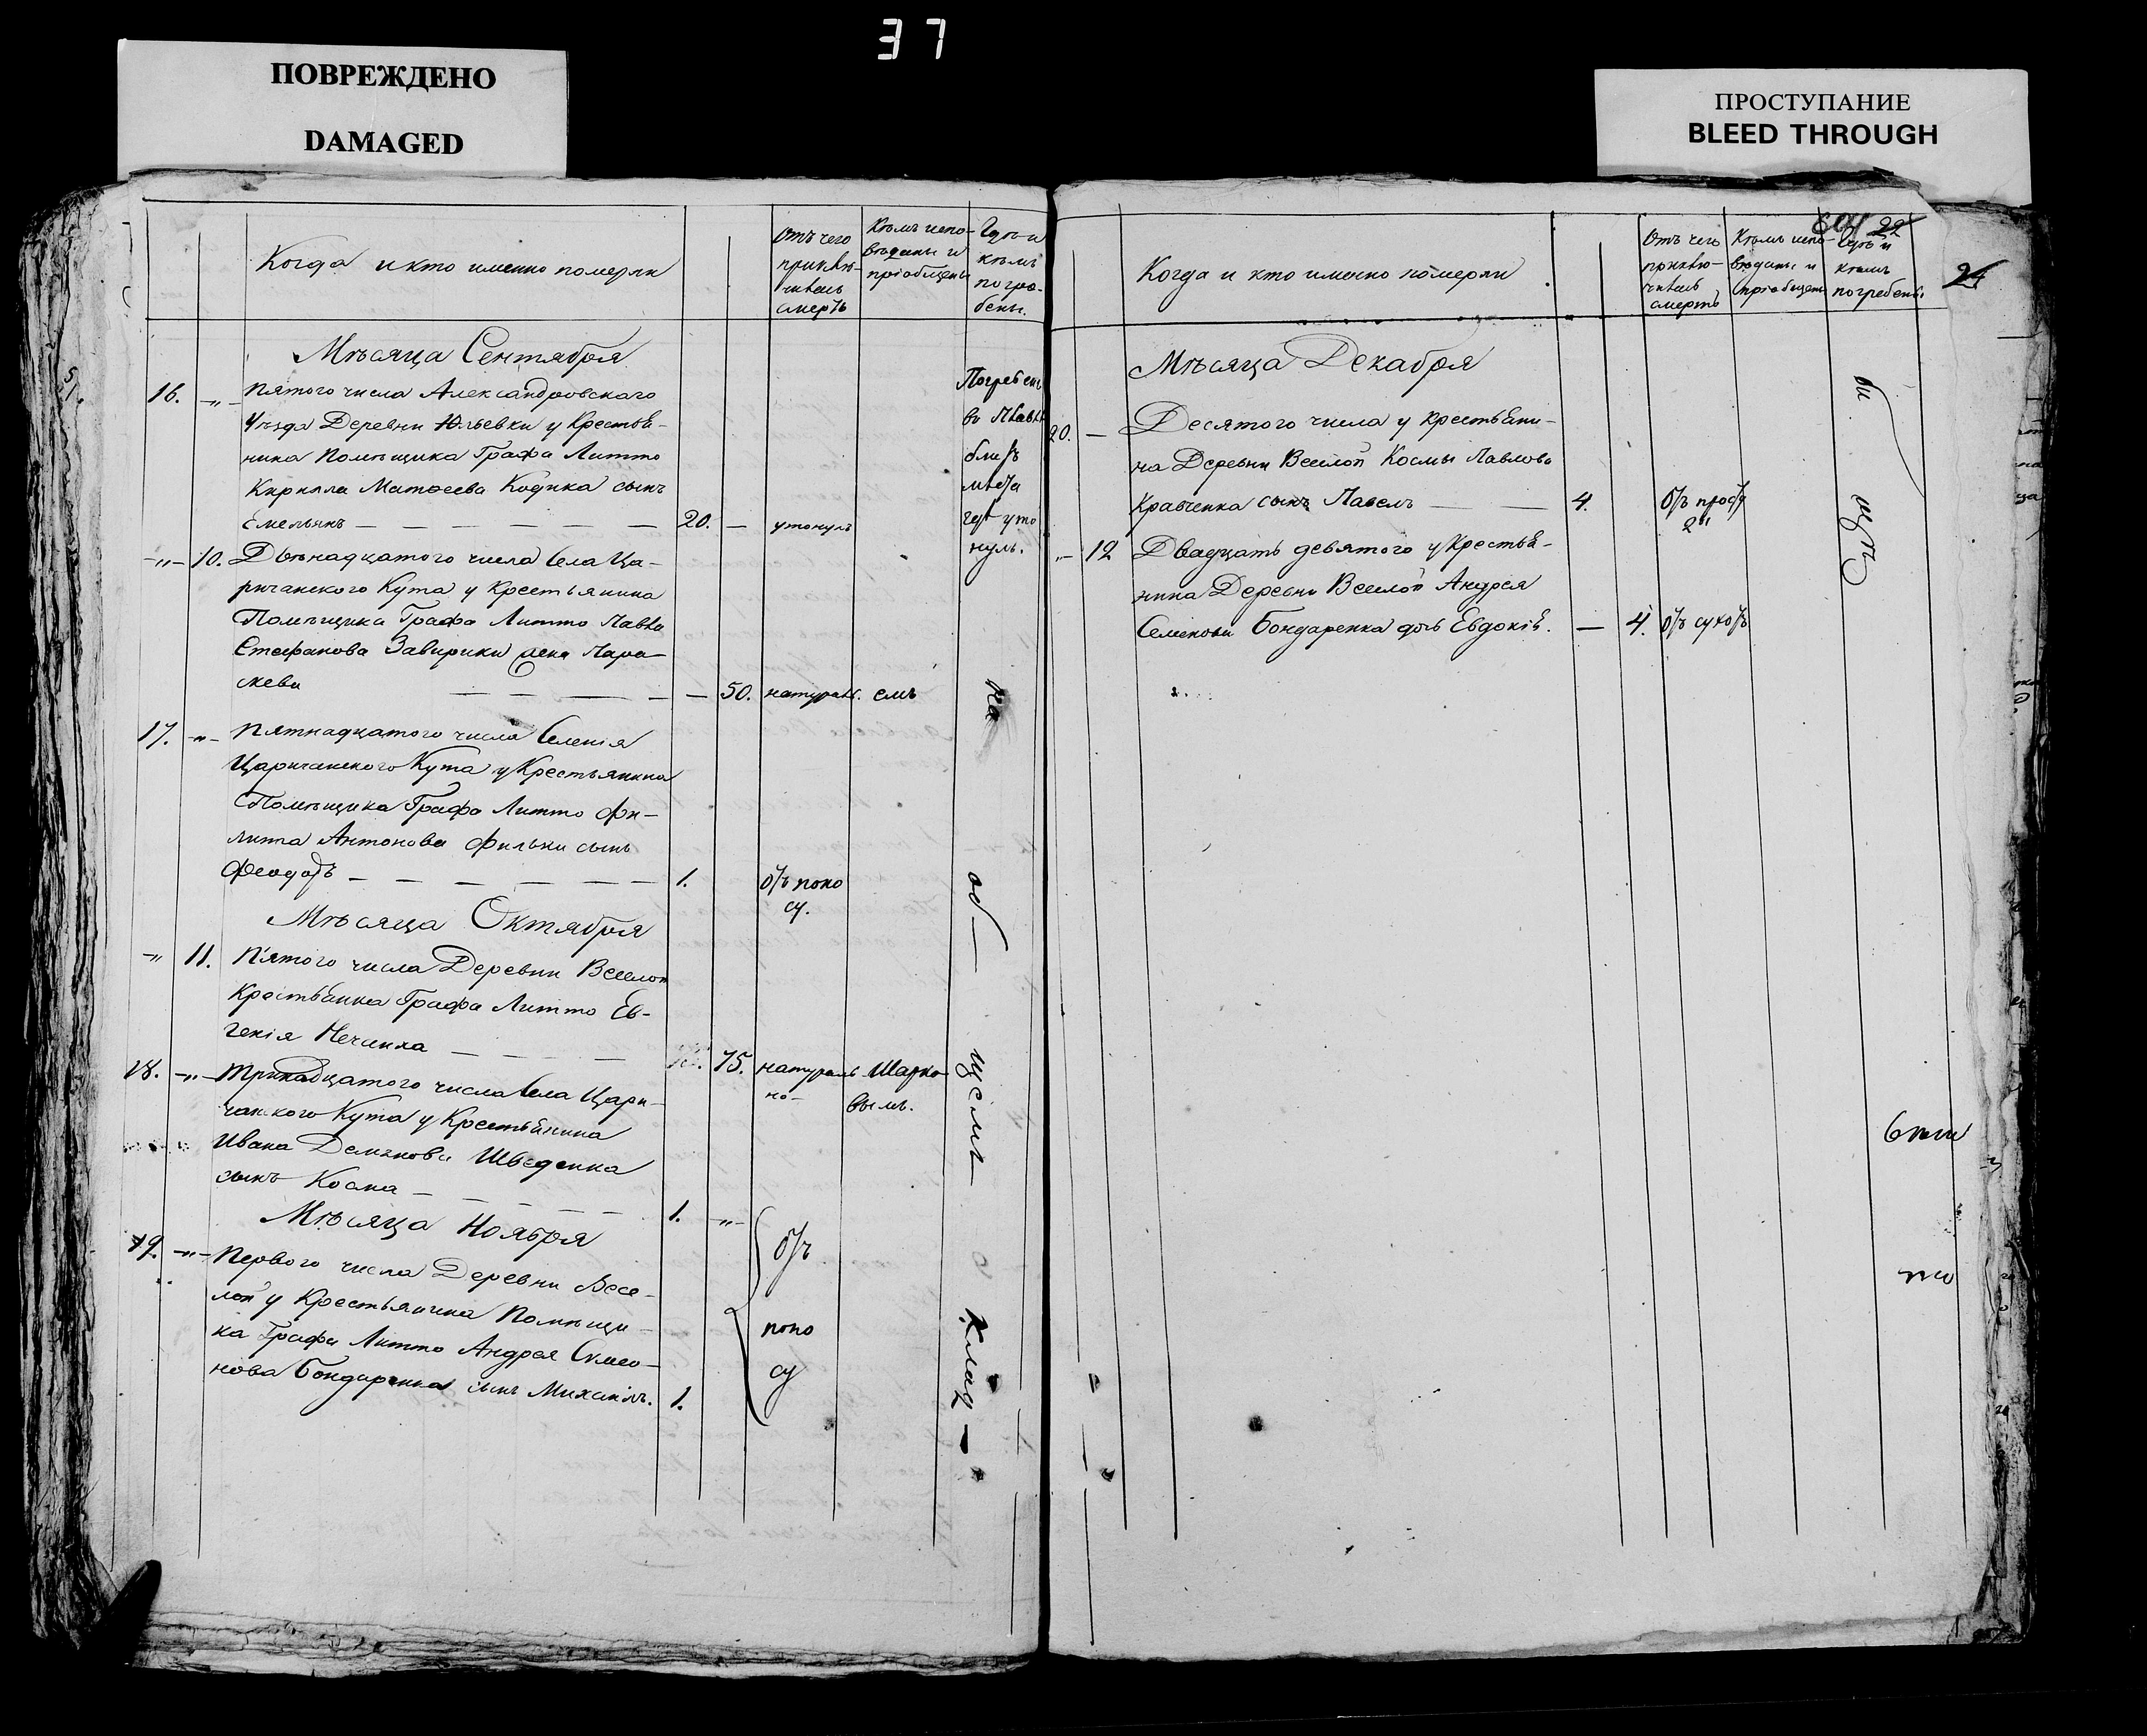 37
ПОВРЕЖДЕНО
DAMAGED
ПРОСТУПАНИЕ
BLEED THROUGH
Когда и кто именно померли
Отъ чего
приклю-
чилась
смерть
Кѣмъ испо-
вѣданы и
пріобщены
Гдѣ и
кѣмъ
погре-
бены.
Мѣсяца Сентября
16. -„- Пятого числа Александровскаго
Уѣзда Деревни Юльевки у Крестья-
нина Помѣщика Графа Литто
Кирилла Матѳеева Кодика сынъ
Емельянъ — — — — — — 20. — утонулъ
Погребенъ
близъ
мѣста
гдѣ уто
нулъ.
-„- 10. Двѣнадцатого числа Села Ца-
ричанского Кута у Крестьянина
Помѣщика Графа Литто Павла
Стефанова Завирюхи жена Пара-
скева — — — — — 50. натураль. емъ
на
17. -„- Пятнадцатого числа Селенія
Царичанского Кута у Крестьянина
Помѣщика Графа Литто Фи-
липа Антонова Фильки сынъ
Феодотъ — — — — — — 1. отъ поно
су.
об—
Мѣсяца Октября
-„ 11. Пятого числа Деревни Веселой
Крестьянка Графа Литто Ев-
генія Нечаика — — — 75. натураль Шарко
но- вымъ.
щемъ
18. -„- Тринадцатого числа Села Цари-
чанского Кута у Крестьянина
Ивана Демянова Шведенка
сынъ Косма — — — — 1. -„-
Мѣсяца Ноября
отъ
поно
су
19. -„- Первого числа Деревни Весе-
лой у Крестьянина Помѣщи-
ка Графа Литто Андрея Симео-
нова Бондаренка сынъ Михаилъ. 1.
клад—
22
24
Когда и кто именно померли
Отъ чего
приклю-
чилась
смерть
Кѣмъ испо-
вѣданы и
пріобщены
Гдѣ и
кѣмъ
погребены.
Мѣсяца Декабря
20. — Десятого числа у Крестьяни-
на Деревни Веселой Космы Павлова
Кравченка сынъ Павелъ — — 4. отъ просту
ды
-„- 12 Двадцать девятого у Крестья-
нина Деревни Веселой Андрея
Семенова Бондаренка дочь Евдокія. — 4. отъ сухотъ
би
щѣ